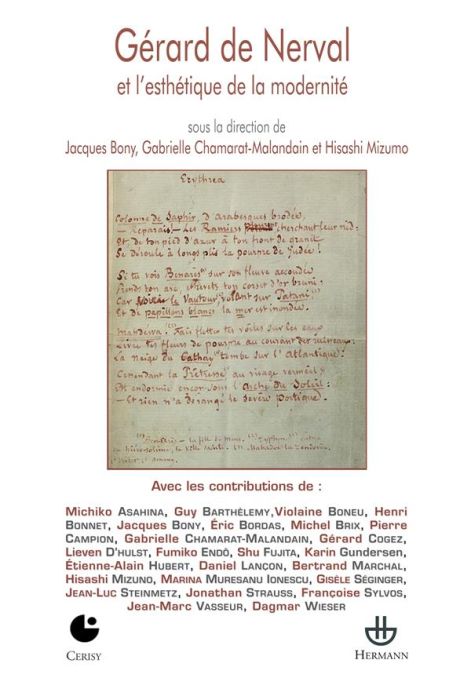 Gérard de Nerval
et l'esthétique de la modernité
sous la direction de
Jacques Bony, Gabrielle Chamarat-Malandain et Hisashi Mizumo
Erythrea
Colonne de Saphir, d'arabesques brodée,
— Reparais! — Les Ramiers cherchant leur nid:
Et de ton pied d'azur à ton front de granit
Se déroule à longs plis la pourpre de Judée!
Si tu vois Bénarès sur son fleuve accoudée
Prends ton arc, et revets ton corset d'or bruni:
Car voici le Vautour, volant sur Patani
Et de papillons blancs la mer est inondée.
Mahdewa. Fais flotter tes voiles sur les eaux
Livre tes fleurs de pourpre au courant des ruisseaux:
La neige du Cathay tombe sur l'Atlantique:
Cependant la Prêtresse au visage vermeil
Est endormie encor sous l'Arche du Soleil:
— Et rien n'a dérangé le sévère portique.
Avec les contributions de :
Michiko Asahina, Guy Barthélemy,Violaine Boneu, Henri
Bonnet, Jacques Bony, Éric Bordas, Michel Brix, Pierre
Campion, Gabrielle Chamarat-Malandain, Gérard Cogez,
Lieven D'hulst, Fumiko Endô, Shu Fujita, Karin Gundersen,
Étienne-Alain Hubert, Daniel Lançon, Bertrand Marchal,
Hisashi Mizuno, Marina Muresanu Ionescu, Gisèle Séginger,
Jean-Luc Steinmetz, Jonathan Strauss, Françoise Sylvos,
Jean-Marc Vasseur, Dagmar Wieser
Cerisy
Hermann